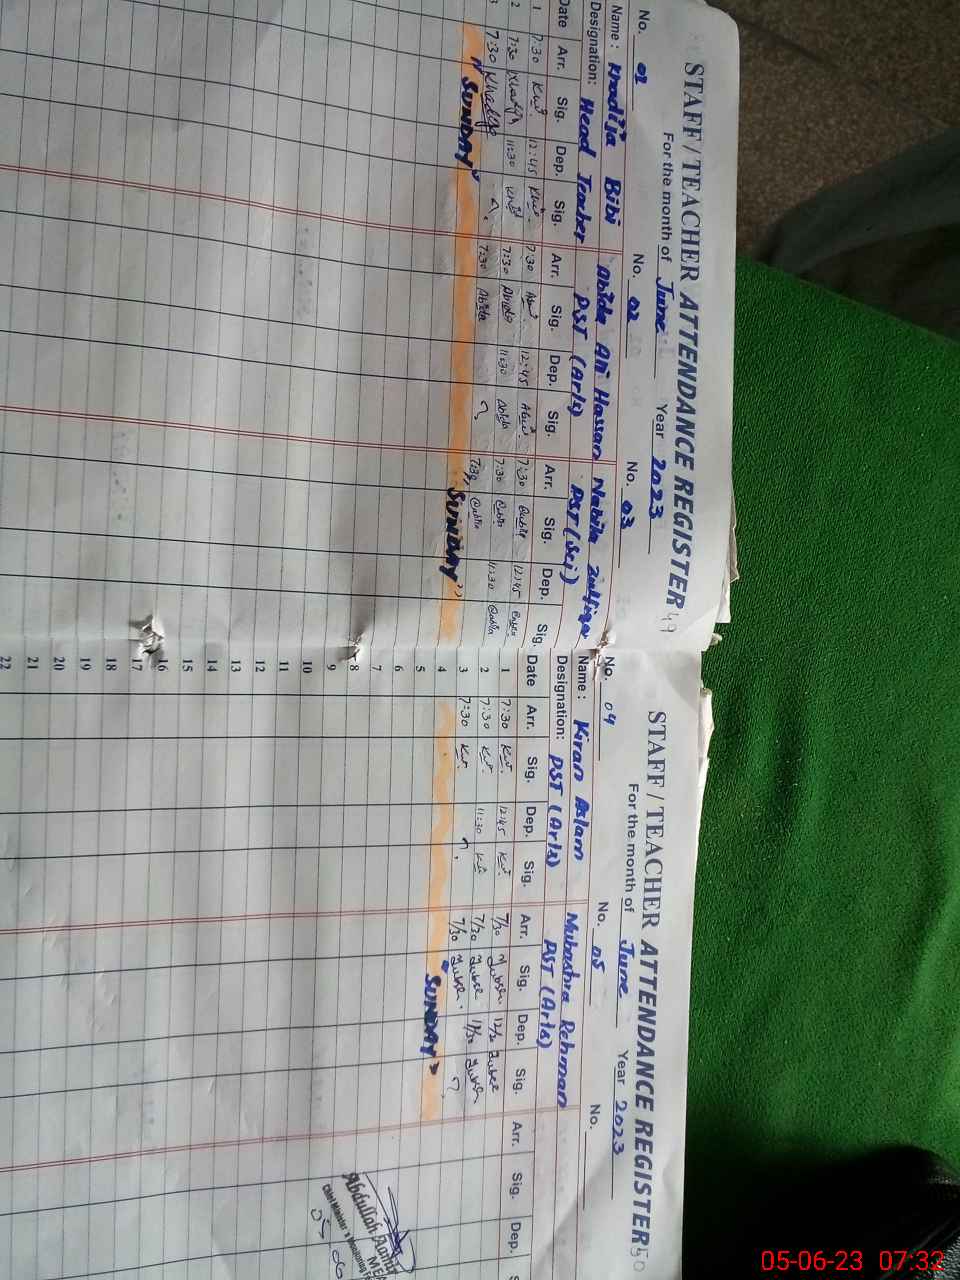 STAFF / TEACHER ATTENDANCE REGISTER 49
For the month of June Year 2023
No. 01 No. 02 No. 03
Name : Khadija Bibi Abida Ali Hassan Nabila Zulfiqar
Designation: Head Teacher PST (Arts) PST (Sci)
Date Arr. Sig. Dep. Sig. Arr. Sig. Dep. Sig. Arr. Sig. Dep. Sig.
1 7:30 12:45 7:30 12:45 7:30 12:45
2 7:30 Khadija 11:30 7:30 Abida 11:30 Abida 7:30 11:30
3 7:30 Khadija ? 7:30 Abida ? 7:30
"SUNDAY" "SUNDAY"
STAFF / TEACHER ATTENDANCE REGISTER 50
For the month of June Year 2023
No. 04 No. 05 No.
Name : Kiran Aslam Mubashra Rehman
Designation: PST (Arts) PST (Arts)
Date Arr. Sig. Dep. Sig. Arr. Sig. Dep. Sig. Arr. Sig. Dep.
1 7:30 12:45 7/30
2 7:30 11:30 7/30 11/30
3 7:30 ? 7/30 ?
4 "SUNDAY"
5
6
7
8
9
10
11
12
13
14
15
16
17
18
19
20
21
22
Abdullah Aamir
MEA
Chief Minister's Monitoring
05-06-23 07:32